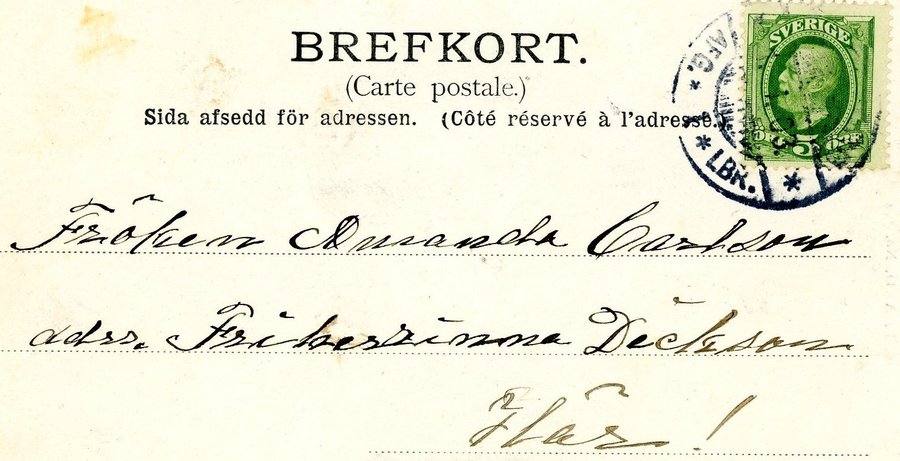 BREFKORT.
(Carte postale.)
Sida afsedd för adressen. (Côté réservé à l'adresse.)
SVERIGE
5 ÖRE
AFG.
* LBR. *
Fröken Amanda Carlson
adrs. Friherrinna Dickson
Här!